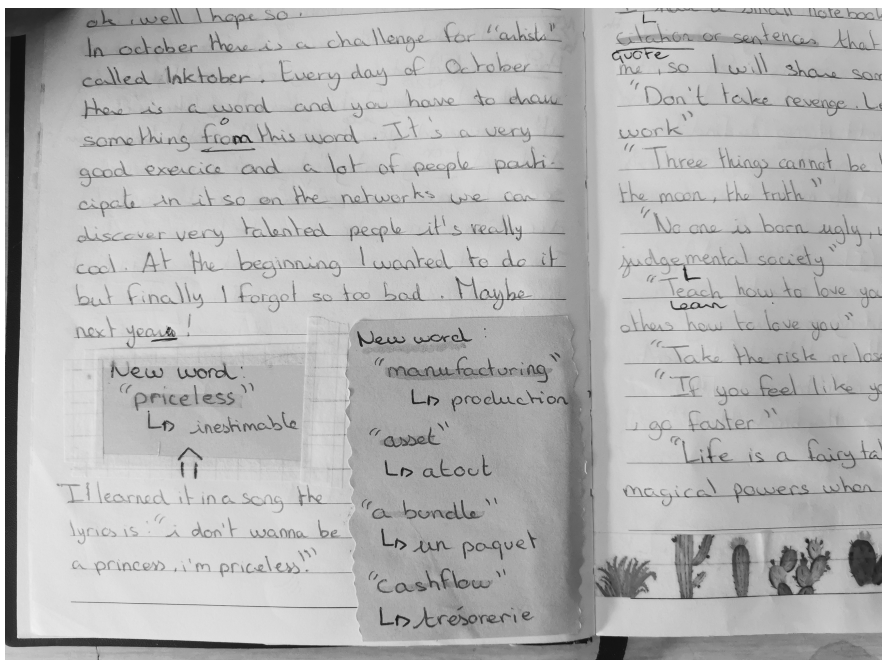 ok, well I hope so.
In october there is a challenge for "artists"
called Inktober. Every day of October
there is a word and you have to draw
something from this word. It's a very
good exercice and a lot of people parti-
cipate in it so on the networks we can
discover very talented people it's really
cool. At the beginning I wanted to do it
but finally I forgot so too bad. Maybe
next year!
New word:
"priceless"
inestimable
I learned it in a song the
lyrics is: "i don't wanna be
a princess, i'm priceless!"
New word:
"manufacturing"
production
"asset"
atout
"a bundle"
un paquet
"cashflow"
trésorerie
small notebook
citation or sentences that
quote
me, so I will share som
"Don't take revenge. L
work"
"Three things cannot be
the moon, the truth"
"No one is born ugly,
judgemental society"
"Teach how to love yo
Learn
others how to love you"
"Take the risk or los
"If you feel like yo
go faster"
"Life is a fairy tal
magical powers when